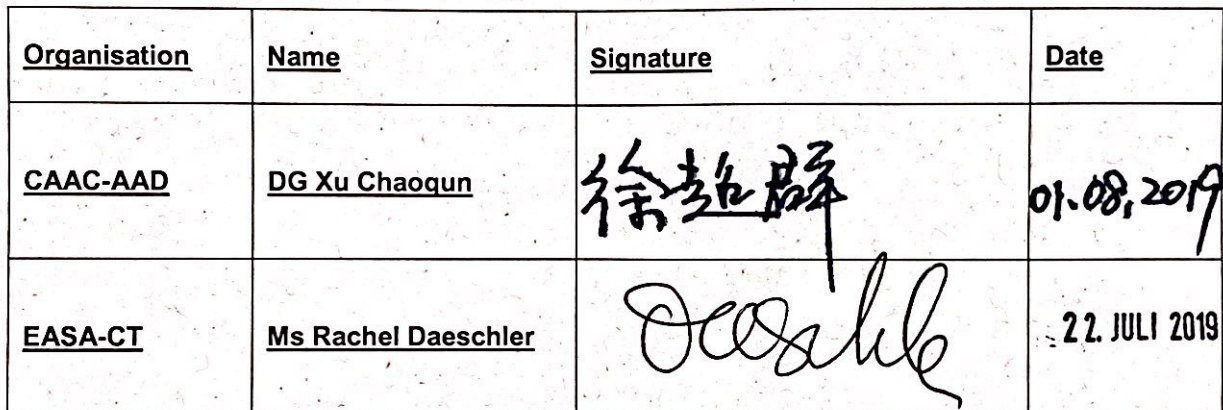 Organisation Name Signature Date
CAAC-AAD DG Xu Chaoqun 徐超群 01.08.2019
EASA-CT Ms Rachel Daeschler Daeschler 22. JULI 2019